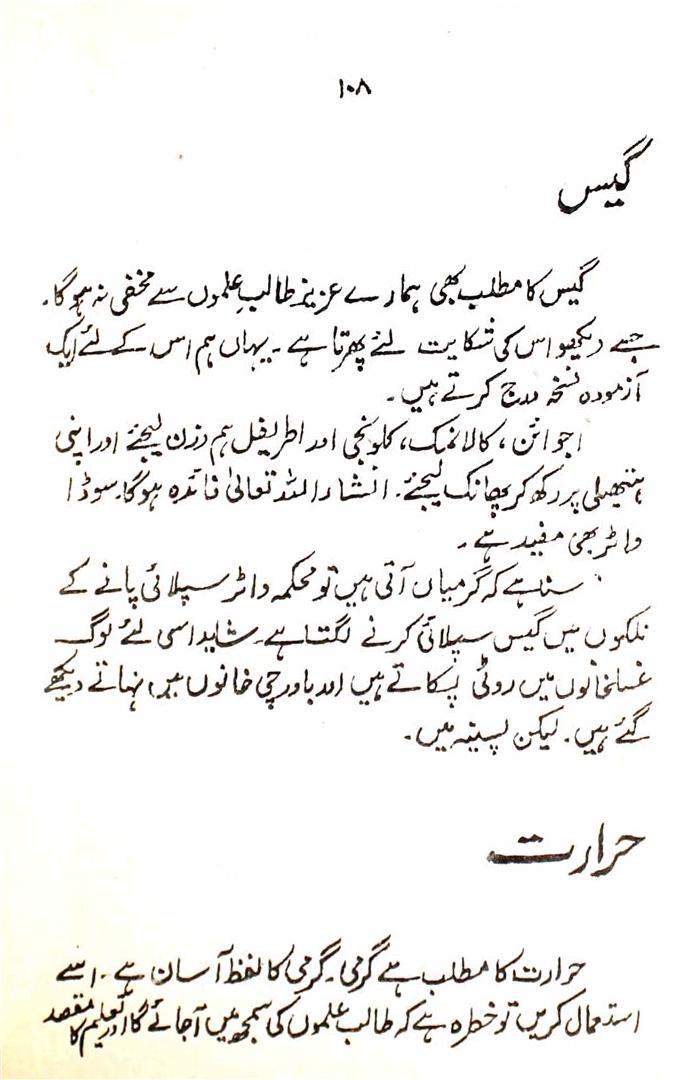 ۱۰۸
گیس
گیس کا مطلب بھی ہمارے عزیز طالب علموں سے مخفی نہ ہوگا۔
جسے دیکھو اس کی شکایت لئے پھرتا ہے ۔ یہاں ہم اس کے لئے ایک
آزمودہ نسخہ درج کرتے ہیں ۔
اجوائن ، کالا نمک، کلونجی اور اطریفل ہم وزن لیجئے اور اپنی
ہتھیلی پر رکھ کر پھانک لیجئے ۔ انشاء اللہ تعالیٰ فائدہ ہوگا۔ سوڈا
واٹر بھی مفید ہے ۔
سنا ہے کہ گرمیاں آتی ہیں تو محکمہ واٹر سپلائی پانے کے
نلکوں میں گیس سپلائی کرنے لگتا ہے۔ شاید اسی لئے لوگ
غسلخانوں میں روٹی پکاتے ہیں اور باورچی خانوں میں نہاتے دیکھے
گئے ہیں ۔ لیکن پسینہ میں ۔
حرارت
حرارت کا مطلب ہے گرمی ۔ گرمی کا لفظ آسان ہے ۔ اسے
استعمال کریں تو خطرہ ہے کہ طالب علموں کی سمجھ میں آجائے گا اور تعلیم کا مقصد